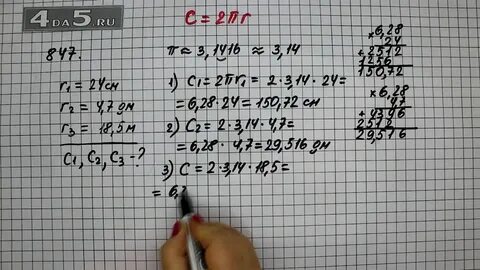 4ДА5.RU
C = 2πr
847.
π ≈ 3,1416 ≈ 3,14
r₁ = 24 см
r₂ = 4,7 дм
r₃ = 18,5 м
C₁, C₂, C₃ - ?
1) C₁ = 2πr₁ = 2·3,14·24 =
= 6,28·24 = 150,72 см
2) C₂ = 2·3,14·4,7 =
= 6,28·4,7 = 29,516 дм
3) C = 2·3,14·18,5 =
= 6,2
× 6,28
24
+ 2512
1256
150,72
× 6,28
4,7
+ 4396
2512
29,516